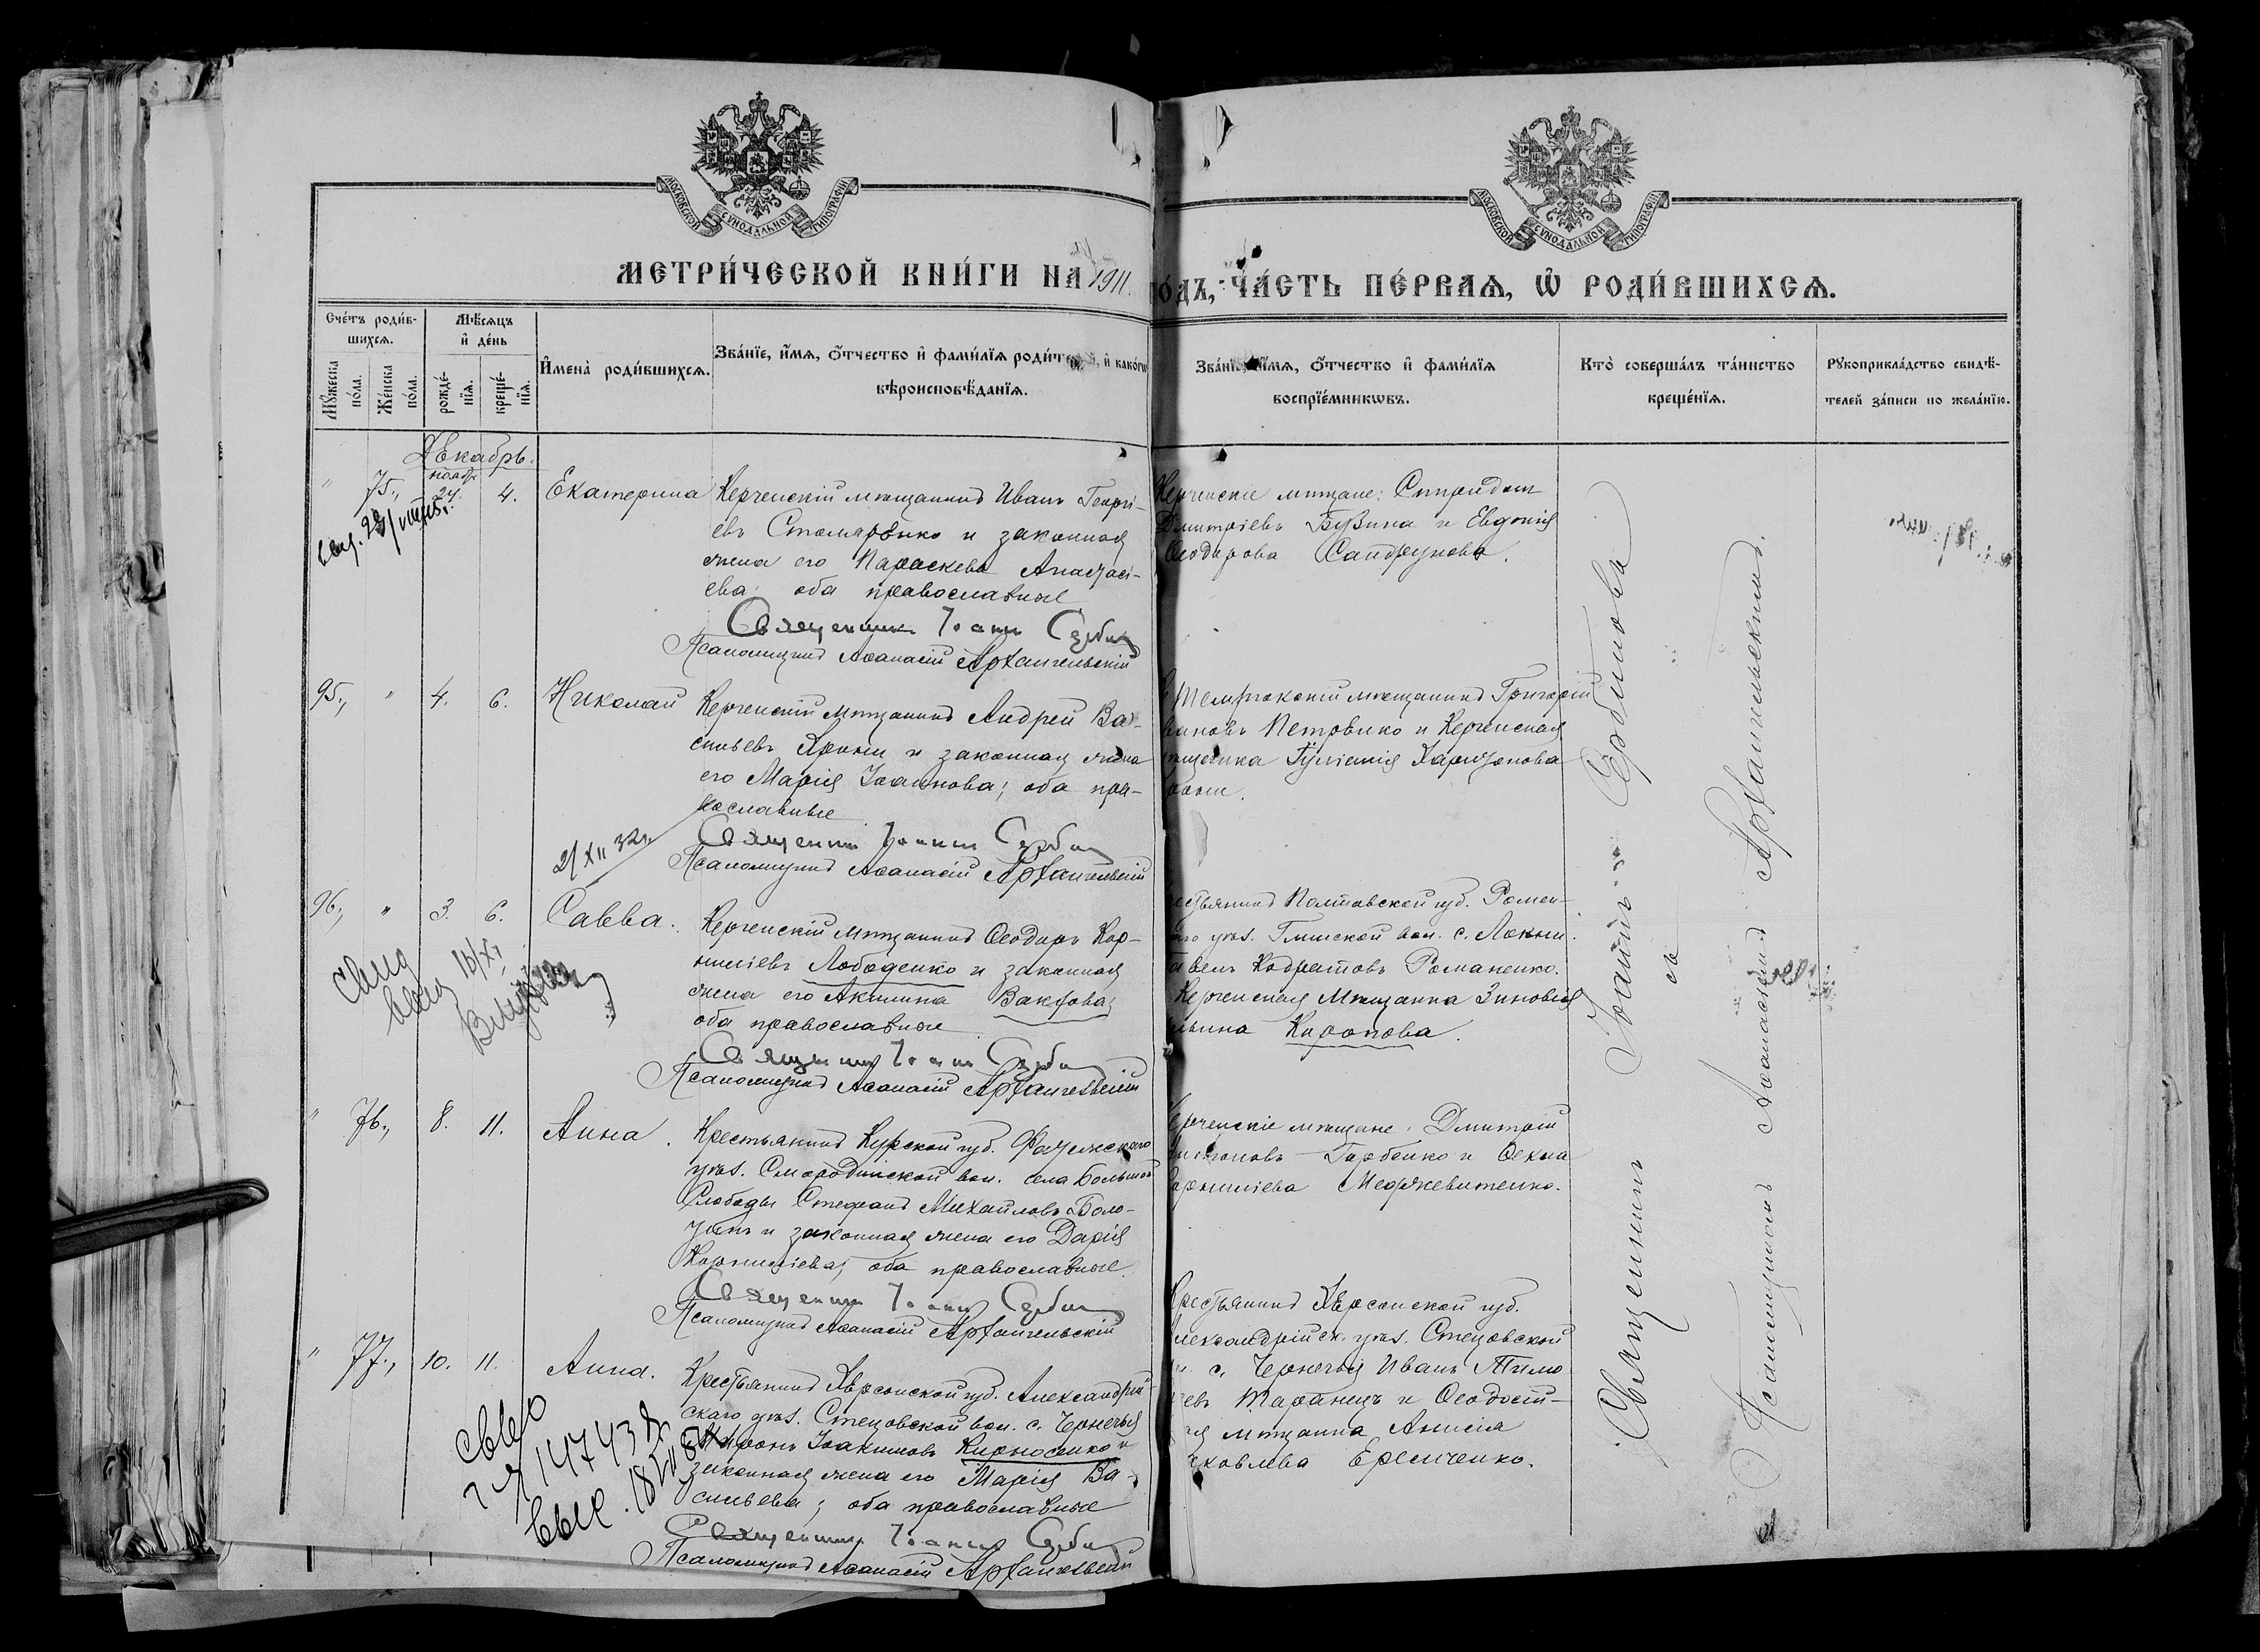 МОСКОВСКОЙ СѴНОДАЛЬНОЙ ТИПОГРАФІИ
МОСКОВСКОЙ СѴНОДАЛЬНОЙ ТИПОГРАФІИ
МЕТРИ́ЧЕСКОЙ КНИ́ГИ НА 1911.
ГО́ДЪ, ЧА́СТЬ ПЕ́РВАѦ, Ѡ҆ РОДИ́ВШИХСѦ.
Сче́тъ роди́в-
шихсѧ.
Мꙋ́жеска по́ла.
Же́нска по́ла.
Мѣ́сѧцъ
и҆ де́нь
рожде́-
нїѧ.
креще́-
нїѧ.
И҆мена̀ роди́вшихсѧ.
Зва́нїе, и҆́мѧ, ѻ҆́тчество и҆ фами́лїѧ роди́т й, и҆ како́гѡ
вѣроисповѣ́данїѧ.
Зва́нї и҆́мѧ, ѻ҆́тчество и҆ фами́лїѧ
воспрїе́мникѡвъ.
Кто̀ соверша́лъ та́инство
креще́нїѧ.
Рꙋкоприкла́дство свидѣ́-
телей за́писи по жела́нїю.
Декабрь.
нояб.
" 75., 27. 4. Екатерина
Керченскій мѣщанинъ Иванъ Георгі-
евъ Столяренко и законная
жена его Параскева Анастасі-
ева; оба православные
Священникъ Іоаннъ Сербинъ
Псаломщикъ Аѳанасій Архангельскій
Керченскіе мѣщане: Спиридонъ
Димитріевъ Бузина и Евдокія
Ѳеодорова Сандрунова.
95., " 4. 6. Николай
Керченскій мѣщанинъ Андрей Ва-
сильевъ Крони и законная жена
его Марія Іоаннова; оба пра-
вославные
Священникъ Іоаннъ Сербинъ
Псаломщикъ Аѳанасій Архангельскій
Темрюкскій мѣщанинъ Григорій
вановъ Петренко и Керченская
мѣщанка Гуліанія Харитонова
рони.
21 XII 32г.
96., " 3. 6. Савва.
Керченскій мѣщанинъ Ѳеодоръ Кор-
ниліевъ Лободенко и законная
жена его Акилина
оба православные
Священникъ Іоаннъ Сербинъ
Псаломщикъ Аѳанасій Архангельскій
естьянинъ Полтавской губ. Ромен-
аго уѣз. Глинской вол. с. Локни.
авелъ Кодратовъ Романенко.
Керченская Мѣщанка Зиновія
льина Киропова.
" 76., 8. 11. Анна.
Крестьянинъ Курской губ. Фатежскаго
уѣз. Смородинской вол. села Большой
Слободы Стефанъ Михайловъ Боло-
тинъ и законная жена его Дарія
Корниліева; оба православные.
Священникъ Іоаннъ Сербинъ
Псаломщикъ Аѳанасій Архангельскій
ерченскіе мѣщане: Димитрій
Горбенко и Ѳекла
орниліева Меоржевитенко.
" 77., 10. 11. Анна.
Крестьянинъ Херсонской губ. Александрій-
скаго уѣз. Стецовской вол. с. Чернечья
Миронъ Іоакимовъ Кирносенко и
законная жена его Марія Ва-
сильева; оба православные
Священникъ Іоаннъ Сербинъ
Псаломщикъ Аѳанасій Архангельскій
Крестьянинъ Херсонской губ.
лександрійск. уѣз. Стецовской
с. Чернечья Иванъ Тимо
евъ Таранецъ и Ѳеодосій-
ая мѣщанка Анисія
яковлева Еремченко.
Священникъ Іоаннъ Сербиновъ
съ
Псаломщикомъ Аѳанасіемъ Архангельскимъ.